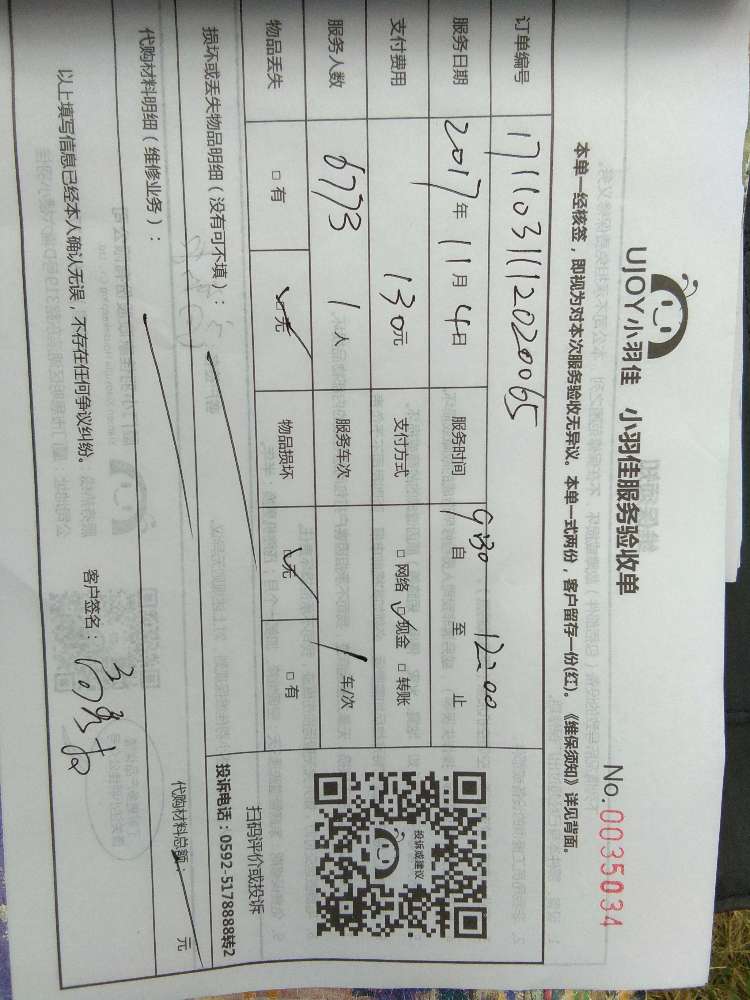 UJOY小羽佳 小羽佳服务验收单
No.0035034
本单一经核签，即视为对本次服务验收无异议。本单一式两份，客户留存一份(红)。《维保须知》详见背面。
订单编号 1711031112020065
服务日期 2017年11月4日 服务时间 9:30 自 至 12:00 止
支付费用 130元 支付方式 □网络 ☑现金 □转账
服务人数 6773 1人 服务车次 1车/次
物品丢失 □有 ☑无 物品损坏 ☑无 □有
投诉或建议
扫码评价或投诉
投诉电话：0592-5178888转2
损坏或丢失物品明细（没有可不填）：
代购材料明细（维修业务）：
代购材料总额： 元
以上填写信息已经本人确认无误，不存在任何争议纠纷。
客户签名：